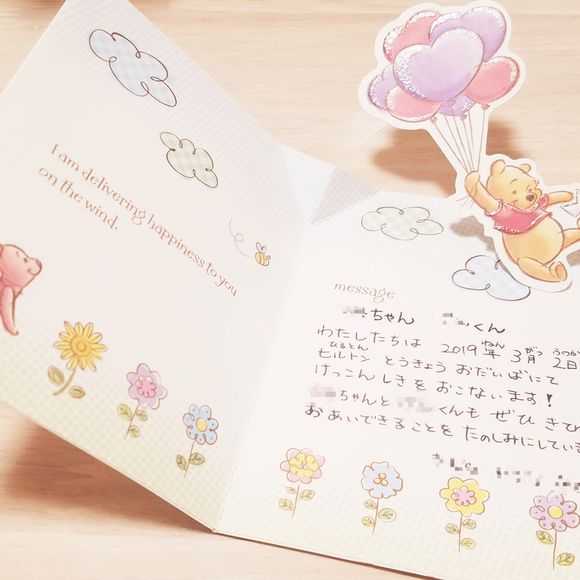 I am delivering happiness to you
on the wind.
message
ちゃん くん
わたしたちは 2019年ねん 3月がつ 2日ふつか
ヒルトンひるとん とうきょう おだいばにて
けっこんしきを おこないます!
ちゃんと くんも ぜひ きひ
おあいできることを たのしみにしていま